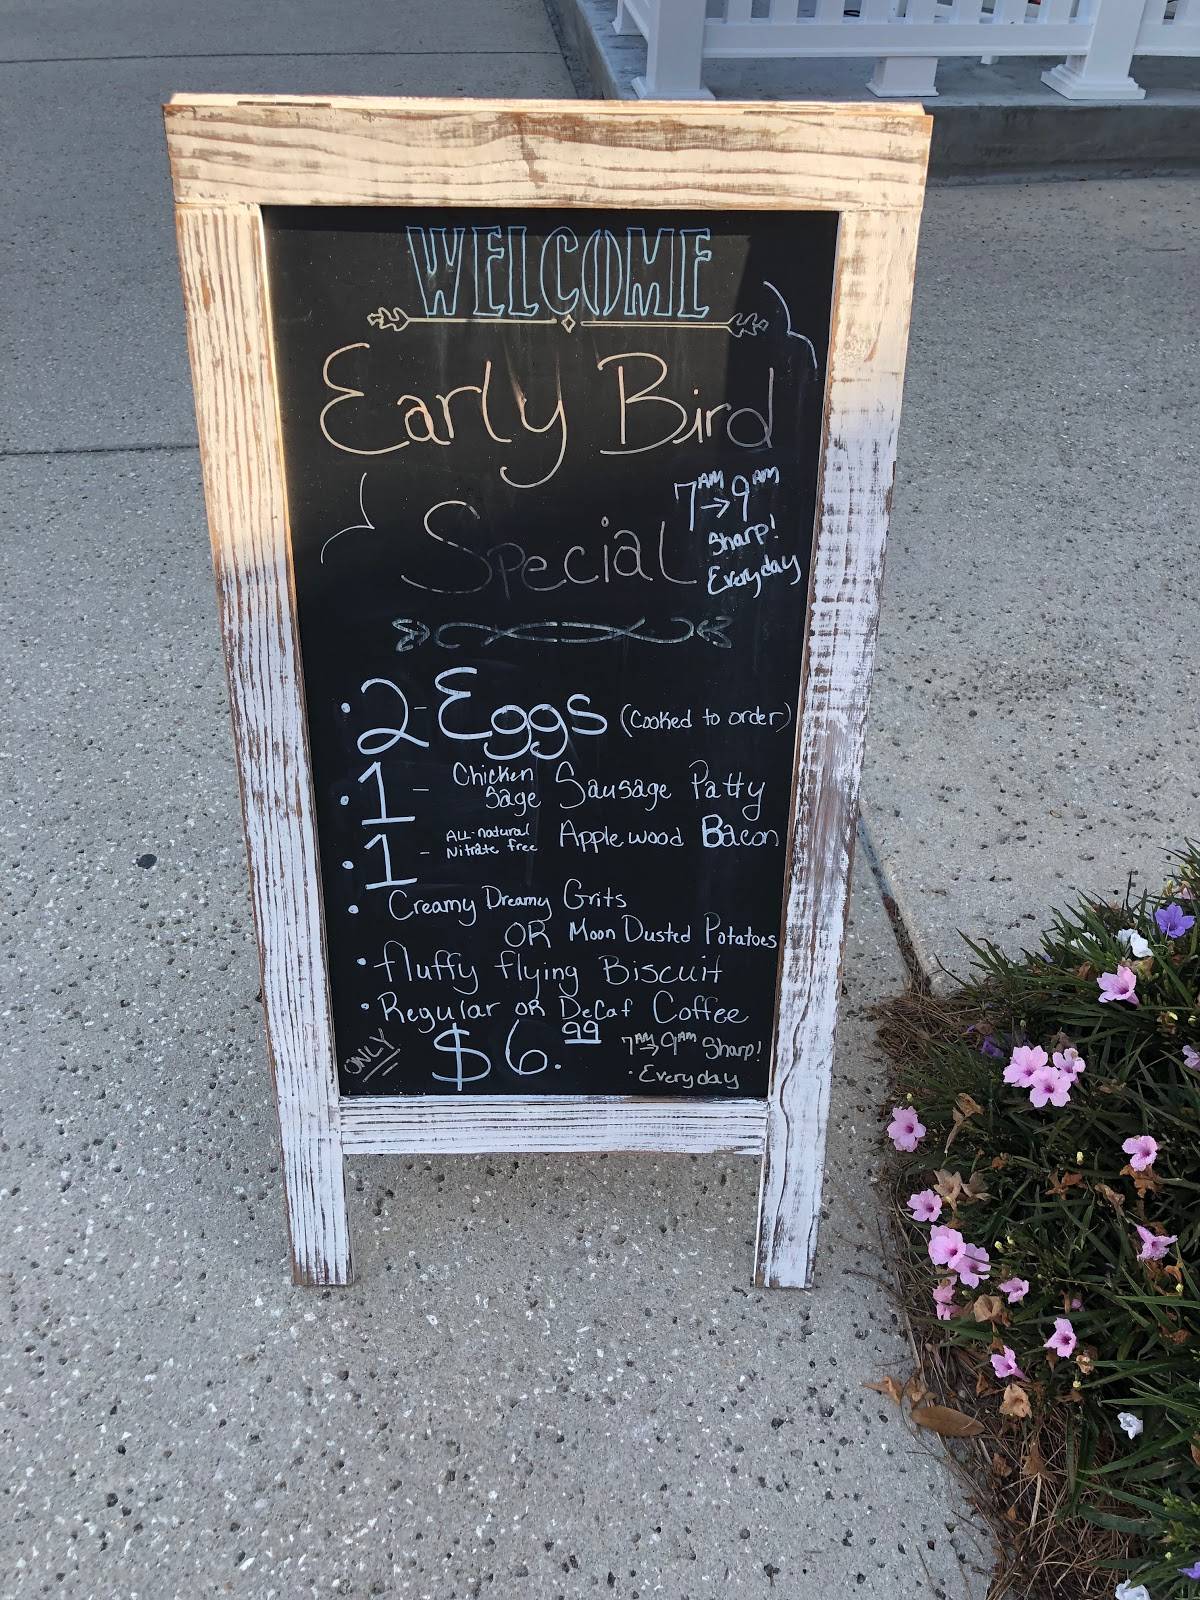 WELCOME
Early Bird
Special
7AM→9AM
Sharp!
Everyday
• 2 - Eggs (Cooked to order)
• 1 - Chicken Sage Sausage Patty
• 1 - ALL-natural Nitrate free Applewood Bacon
• Creamy Dreamy Grits
OR Moon Dusted Potatoes
• fluffy flying Biscuit
• Regular OR DeCaf Coffee
ONLY $6.99
7AM→9AM Sharp!
• Everyday